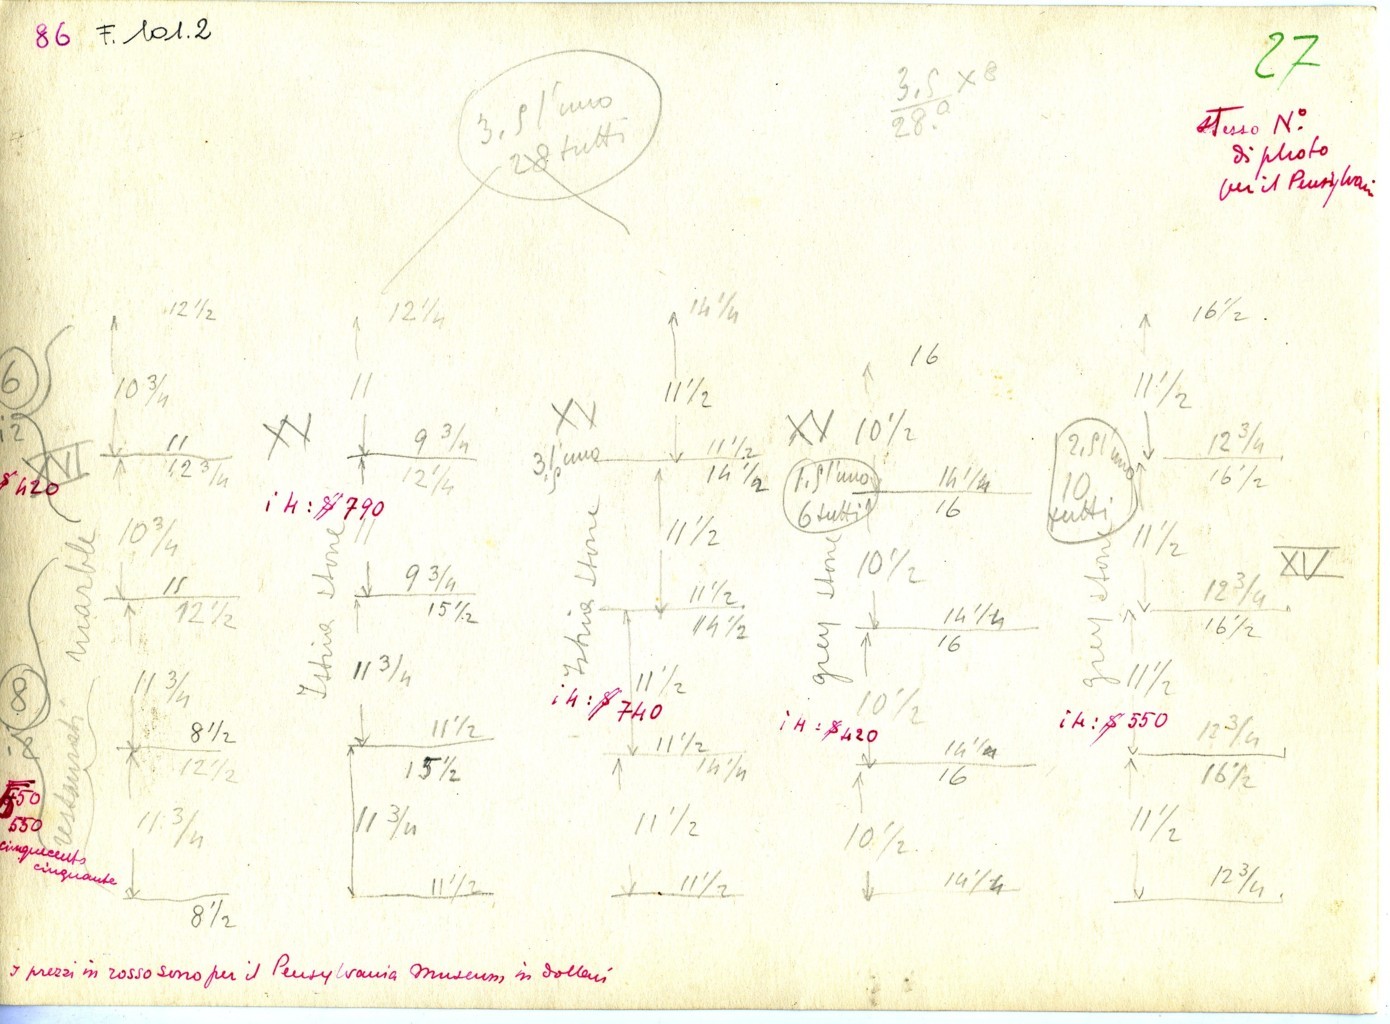 86 F. 101.2
27
stesso N.º
di photo
per il Pensylvani
3.5 l'uno
28 tutti
3.5 x 8
28.0
12 1/2
10 3/4
11
12 3/4
10 3/4
11
12 1/2
11 3/4
8 1/2
12 1/2
11 3/4
8 1/2
6
i 2
XVI
$ 420
marble
8
restaurati
550
cinquecento
cinquante
12 1/4
11
9 3/4
12 1/4
XV
i 4: $ 790
11
9 3/4
15 1/2
Istria stone
11 3/4
11 1/2
15 1/2
11 3/4
11 1/2
14 1/4
11 1/2
XV
3.5 l'uno
11 1/2
14 1/2
11 1/2
11 1/2
14 1/2
Istria stone
11 1/2
i 4: $ 740
11 1/2
14 1/4
11 1/2
11 1/2
16
10 1/2
XV
1.5 l'uno
6 tutti
14 1/4
16
10 1/2
14 1/4
16
grey stone
10 1/2
i 4: $ 420
14 1/4
16
10 1/2
14 1/4
16 1/2
11 1/2
12 3/4
16 1/2
2.5 l'uno
10
tutti
11 1/2
XV
12 3/4
16 1/2
grey stone
11 1/2
i 4: $ 550
12 3/4
16 1/2
11 1/2
12 3/4
I prezzi in rosso sono per il Pensylvania Museum in dollari